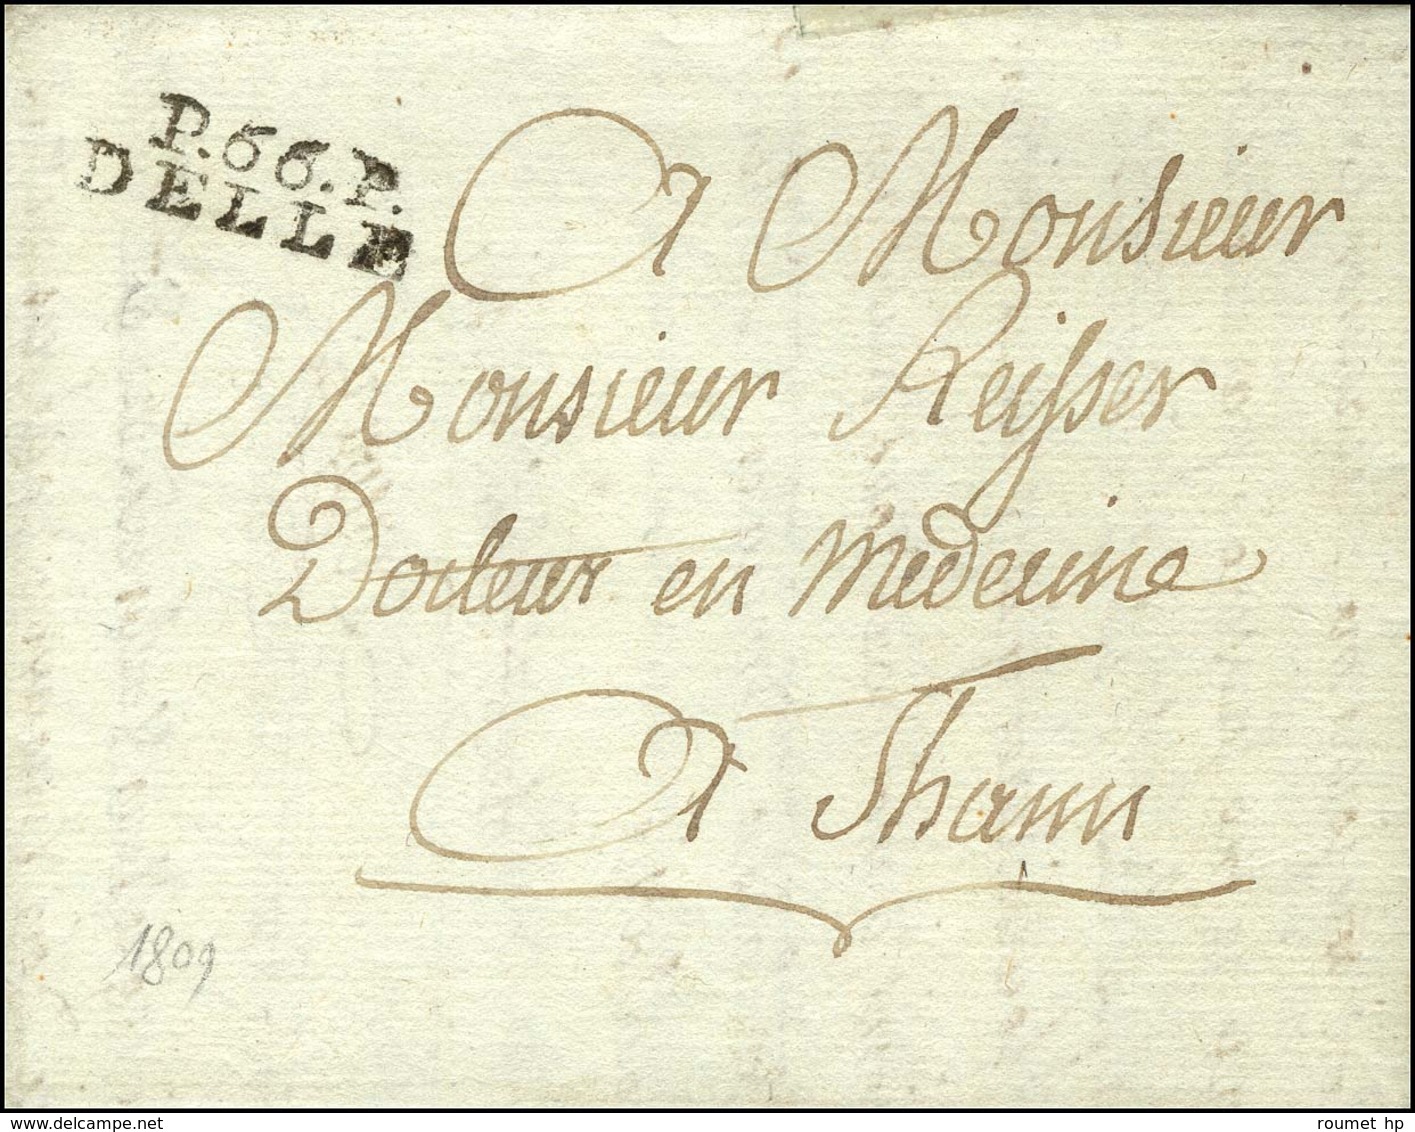 P.66.P.
DELLE
A Monsieur
Monsieur Keysser
Docteur en Medecine
A Thann
1809
delcampe.net
roumet hp